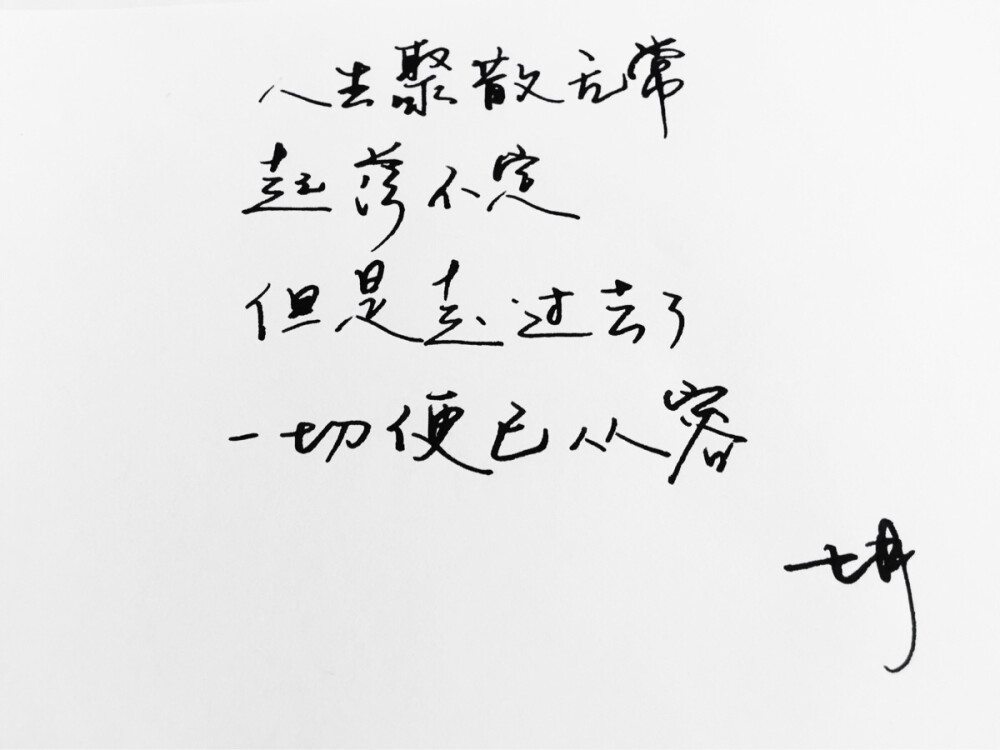 人生聚散无常
起落不定
但是走过去了
一切便已从容